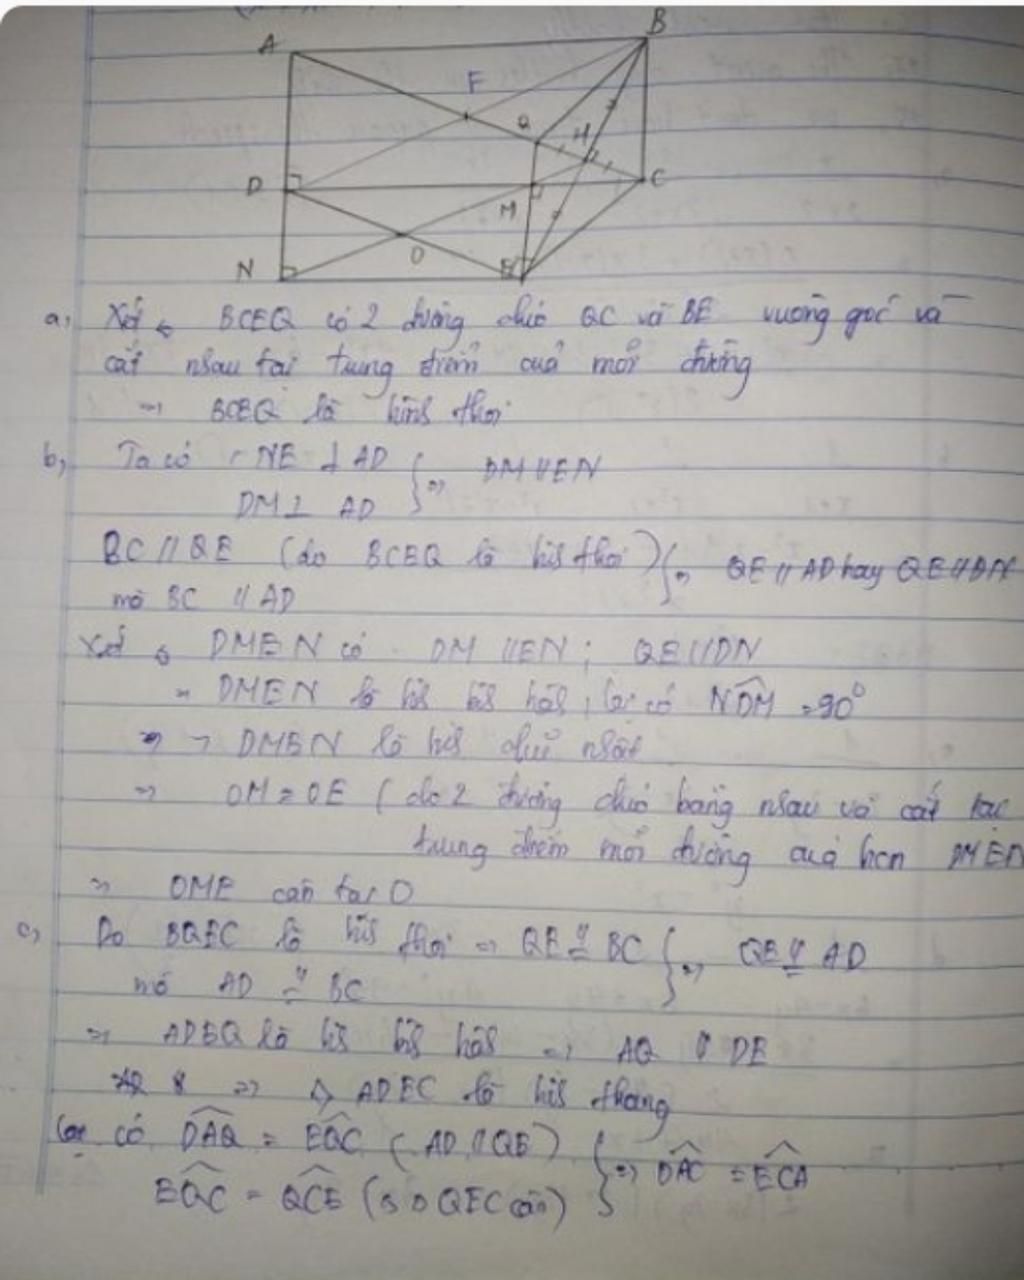 A
B
F
Q
H
D
C
M
N
O
E
a, Xét ◊ BCEQ có 2 đường chéo QC và BE vuông góc và
cắt nhau tại trung điểm của mỗi đường
=> BCEQ là hình thoi
b, Ta có NE ⊥ AD } => DM // EN
DM ⊥ AD
BC // QE (do BCEQ là hình thoi) } => QE // AD hay QE // DN
mà BC // AD
Xét ◊ DMEN có DM // EN ; QE // DN
=> DMEN là hình bình hành, lại có NDM = 90°
=> DMEN là hình chữ nhật
=> OM = OE (do 2 đường chéo bằng nhau và cắt tại
trung điểm mỗi đường của hcn DMEN
=> OME cân tại O
c, Do BQEC là hình thoi => QE // = BC } => QE // = AD
mà AD // = BC
=> ADEQ là hình bình hành => AQ // DE
=> ◊ ADEC là hình thang
Lại có DAQ = EQC (AD // QE) } => DAC = ECA
EQC = QCE (Δ QEC cân)